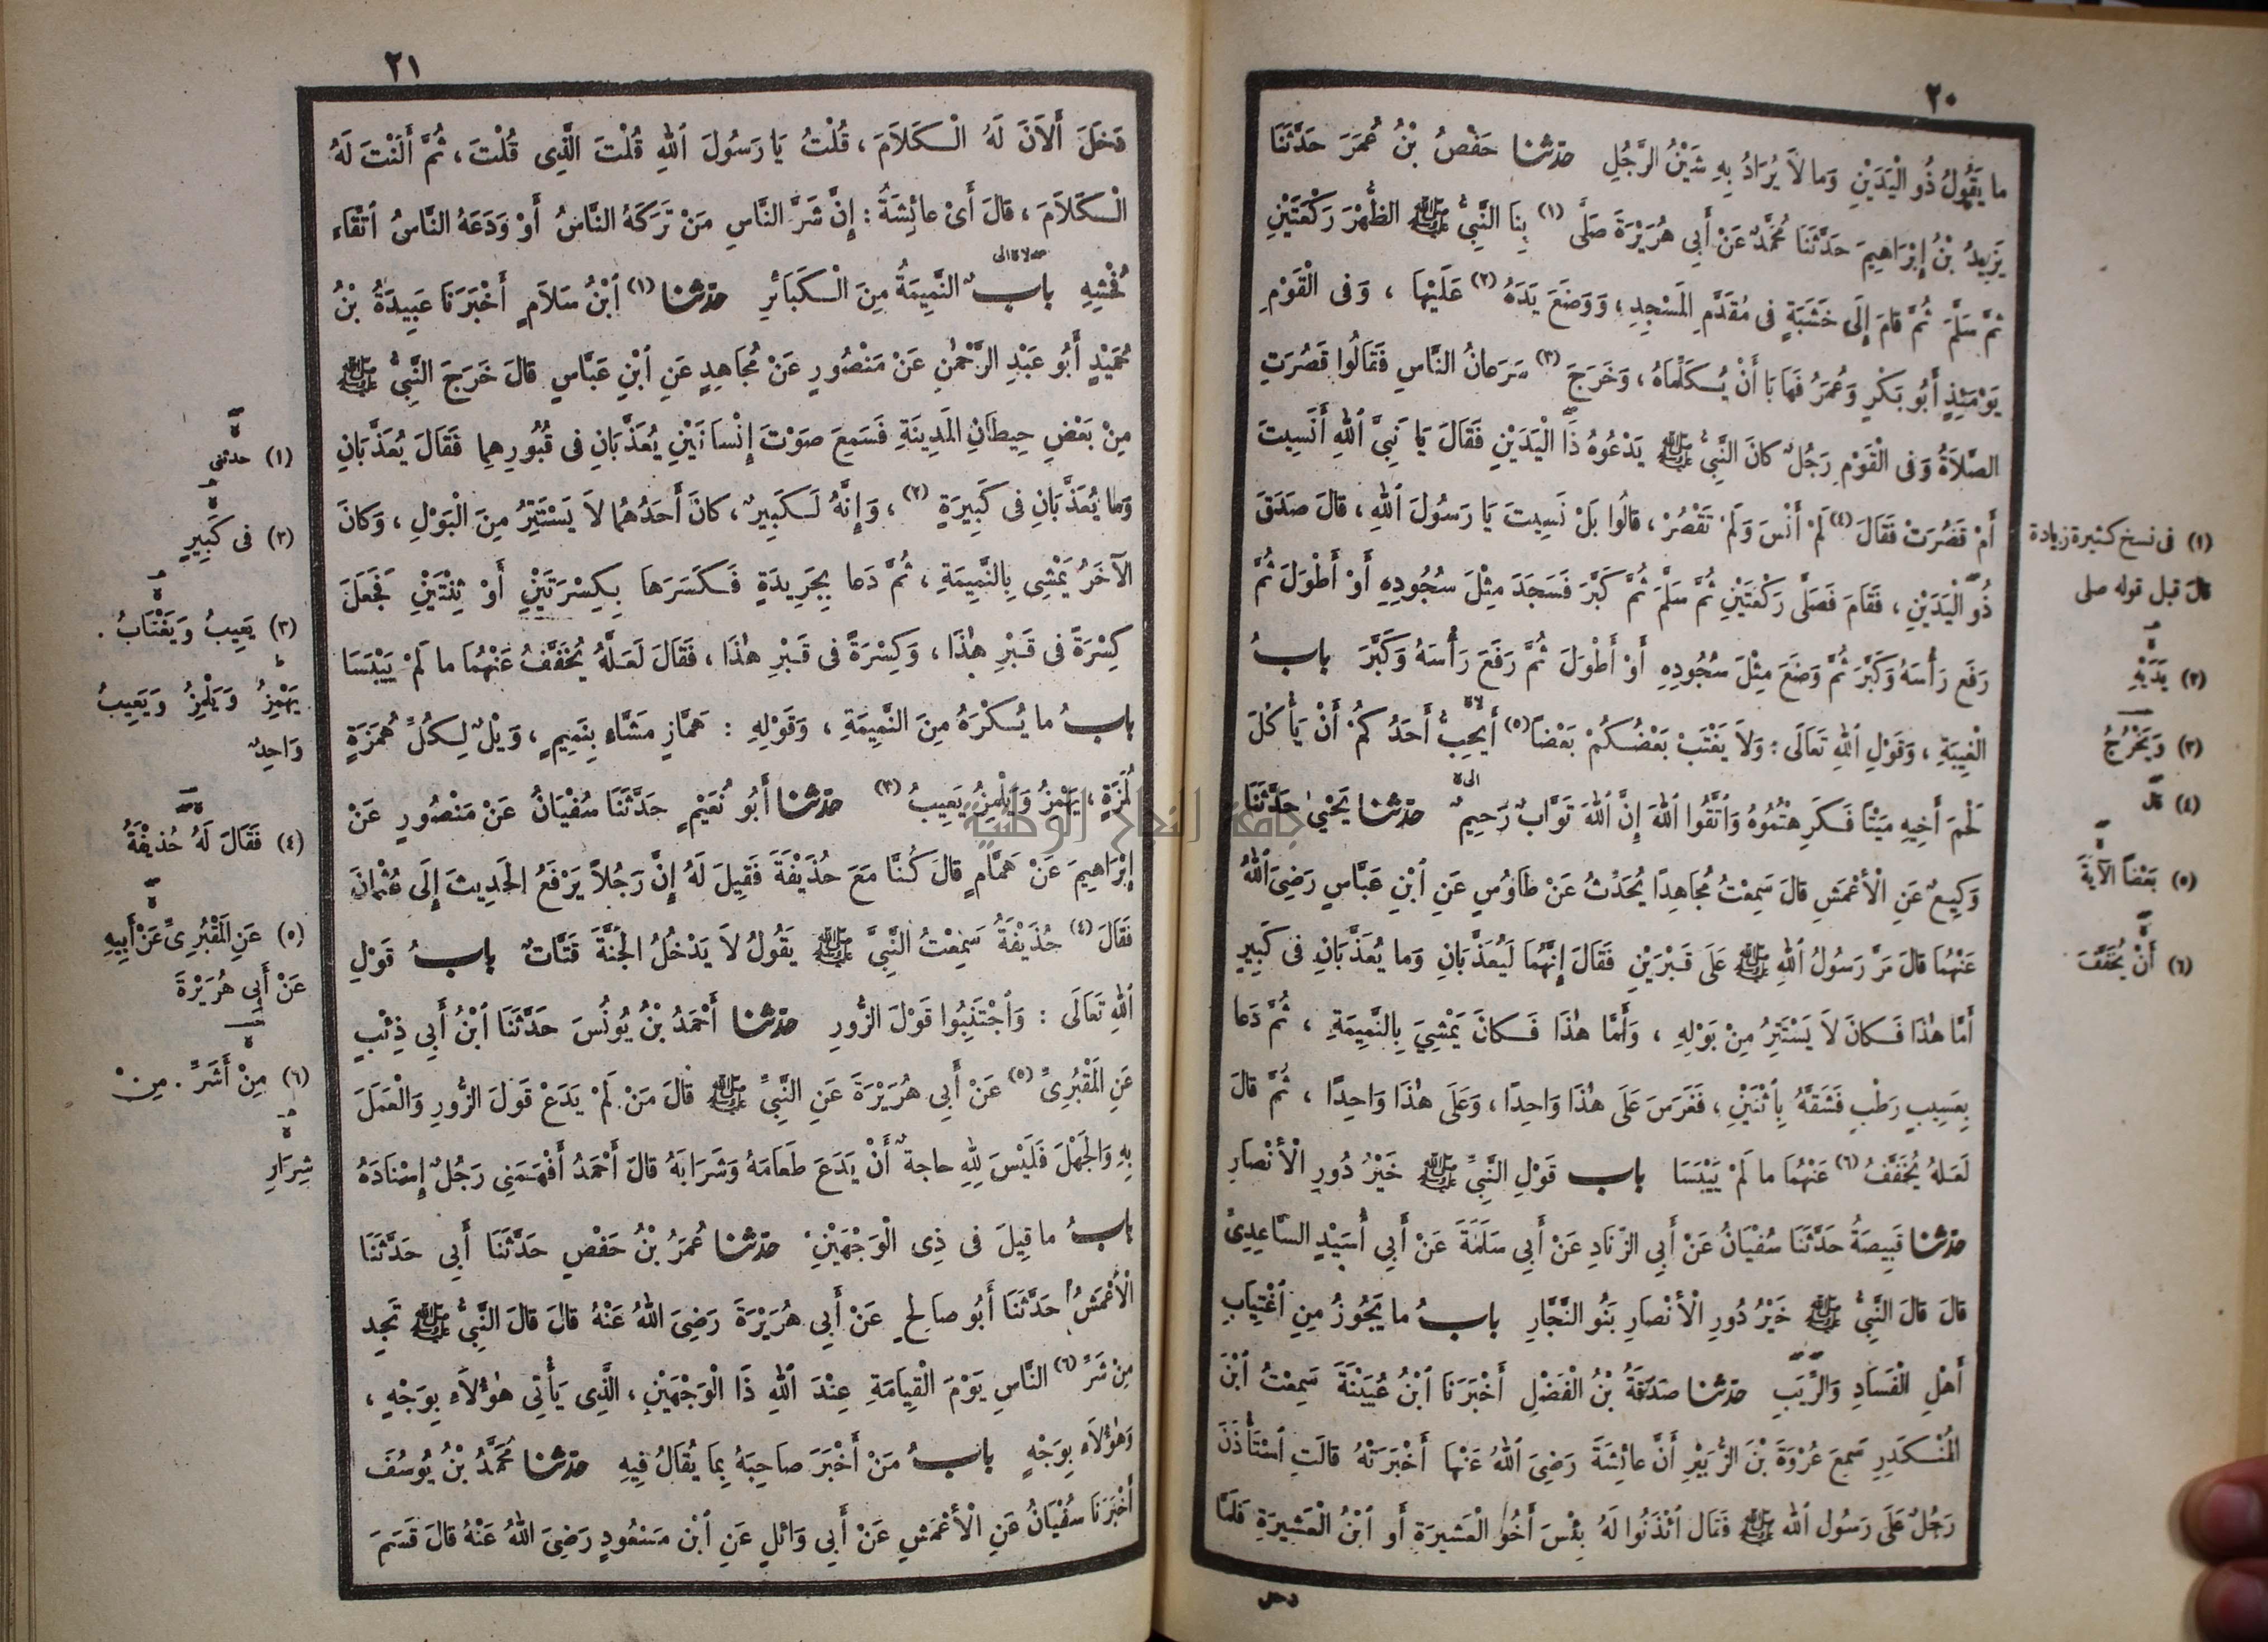 ٢٠
ما يَقُولُ ذُو الْيَدَيْنِ وَما لاَ يُرَادُ بِهِ شَيْنُ الرَّجُلِ حدثنا حَفْصُ بْنُ عُمَرَ حَدَّثَنَا
يَزِيدُ بْنُ إِبْرَاهِيمَ حَدَّثَنَا مُحَمَّدٌ عَنْ أَبِي هُرَيْرَةَ صَلَّى (١) بِنَا النَّبِيُّ ﷺ الظُّهْرَ رَكْعَتَيْنِ
ثُمَّ سَلَّمَ ثُمَّ قامَ إِلَى خَشَبَةٍ فِى مُقَدَّمِ المَسْجِدِ، وَوَضَعَ يَدَهُ (٢) عَلَيْهَا ، وَفِى الْقَوْمِ
يَوْمَئِذٍ أَبُو بَكْرٍ وَعُمَرُ فَهَابَا أَنْ يُكَلِّمَاهُ ، وَخَرَجَ (٣) سَرَعانُ النَّاسِ فَقَالُوا قَصُرَتِ
الصَّلاَةُ وَفِى الْقَوْمِ رَجُلٌ كانَ النَّبِيُّ ﷺ يَدْعُوهُ ذَا الْيَدَيْنِ فَقَالَ يَا نَبِيَّ اللهِ أَنَسِيتَ
أَمْ قَصُرَتْ فَقَالَ (٤) لَمْ أَنْسَ وَلَمْ تَقْصُرْ ، قالُوا بَلْ نَسِيتَ يَا رَسُولَ اللهِ ، قالَ صَدَقَ
ذُو الْيَدَيْنِ ، فَقَامَ فَصَلَّى رَكْعَتَيْنِ ثُمَّ سَلَّمَ ثُمَّ كَبَّرَ فَسَجَدَ مِثْلَ سُجُودِهِ أَوْ أَطْوَلَ ثُمَّ
رَفَعَ رَأْسَهُ وَكَبَّرَ ثُمَّ وَضَعَ مِثْلَ سُجُودِهِ أَوْ أَطْوَلَ ثُمَّ رَفَعَ رَأْسَهُ وَكَبَّرَ بابُ
الْغِيبَةِ ، وَقَوْلِ اللهِ تَعَالَى : وَلاَ يَغْتَبْ بَعْضُكُمْ بَعْضًا (٥) أَيُحِبُّ أَحَدُكُمْ أَنْ يَأْكُلَ
لَحْمَ أَخِيهِ مَيْتًا فَكَرِهْتُمُوهُ وَاتَّقُوا اللهَ إِنَّ اللهَ تَوَّابٌ رَحِيمٌ حدثنا يَحْيَى حَدَّثَنَا
وَكِيعٌ عَنِ الْأَعْمَشِ قالَ سَمِعْتُ مُجَاهِدًا يُحَدِّثُ عَنْ طَاوُسٍ عَنِ ابْنِ عَبَّاسٍ رَضِيَ اللهُ
عَنْهُمَا قالَ مَرَّ رَسُولُ اللهِ ﷺ عَلَى قَبْرَيْنِ فَقَالَ إِنَّهُمَا لَيُعَذَّبَانِ وَما يُعَذَّبَانِ فِى كَبِيرٍ
أَمَّا هٰذَا فَكانَ لاَ يَسْتَتِرُ مِنْ بَوْلِهِ ، وَأَمَّا هٰذَا فَكانَ يَمْشِي بِالنَّمِيمَةِ ، ثُمَّ دَعا
بِعَسِيبٍ رَطْبٍ فَشَقَّهُ بِاثْنَيْنِ ، فَغَرَسَ عَلَى هٰذَا وَاحِدًا ، وَعَلَى هٰذَا وَاحِدًا ، ثُمَّ قالَ
لَعَلهُ يُخَفَّفُ (٦) عَنْهُمَا ما لَمْ يَيْبَسَا باب قَوْلِ النَّبِيِّ ﷺ خَيْرُ دُورِ الْأَنْصَارِ
حدثنا قَبِيصَةُ حَدَّثَنَا سُفْيَانُ عَنْ أَبِي الزِّنَادِ عَنْ أَبِي سَلَمَةَ عَنْ أَبِي أُسَيْدٍ السَّاعِدِيِّ
قالَ قالَ النَّبِيُّ ﷺ خَيْرُ دُورِ الْأَنْصَارِ بَنُو النَّجَّارِ بابُ ما يَجُوزُ مِنِ اغْتِيَابِ
أَهْلِ الْفَسَادِ وَالرِّيَبِ حدثنا صَدَقَةُ بْنُ الْفَضْلِ أَخْبَرَنَا ابْنُ عُيَيْنَةَ سَمِعْتُ ابْنَ
المُنْكَدِرِ سَمِعَ عُرْوَةَ بْنَ الزُّبَيْرِ أَنَّ عائِشَةَ رَضِيَ اللهُ عَنْهَا أَخْبَرَتْهُ قالَتِ اسْتَأْذَنَ
رَجُلٌ عَلَى رَسُولِ اللهِ ﷺ فَقَال ائْذَنُوا لَهُ بِئْسَ أَخُو الْعَشِيرَةِ أَوِ ابْنُ الْعَشِيرَةِ فَلَمَّا
دخل
(١) فى نسخ كثيرة زيادة
قال قبل قوله صلى
(٢) يَدَيْهِ
(٣) وَيَخْرُجُ
(٤) قال
(٥) بَعْضًا الآيَةَ
(٦) أَنْ يُخَفَّفَ
٢١
دَخَلَ أَلاَنَ لَهُ الْكَلاَمَ ، قُلْتُ يَا رَسُولَ اللهِ قُلْتَ الَّذِى قُلْتَ ، ثُمَّ أَلَنْتَ لَهُ
الْكَلاَمَ ، قالَ أَىْ عائِشَةُ : إِنَّ شَرَّ النَّاسِ مَنْ تَرَكَهُ النَّاسُ أَوْ وَدَعَهُ النَّاسُ اتِّقَاءَ
فُحْشِهِ بابٌ النَّمِيمَةُ مِنَ الْكَبَائِرِ حدثنا (١) ابْنُ سَلاَمٍ أَخْبَرَنَا عَبِيدَةُ بْنُ
حُمَيْدٍ أَبُو عَبْدِ الرَّحْمٰنِ عَنْ مَنْصُورٍ عَنْ مُجَاهِدٍ عَنِ ابْنِ عَبَّاسٍ قالَ خَرَجَ النَّبِيُّ ﷺ
مِنْ بَعْضِ حِيطَانِ المَدِينَةِ فَسَمِعَ صَوْتَ إِنْسَانَيْنِ يُعَذَّبَانِ فِى قُبُورِهِما فَقَالَ يُعَذَّبَانِ
وَما يُعَذَّبَانِ فِى كَبِيرَةٍ (٢) ، وَإِنَّهُ لَكَبِيرٌ ، كانَ أَحَدُهُمَا لاَ يَسْتَتِرُ مِنَ الْبَوْلِ ، وَكانَ
الآخَرُ يَمْشِى بِالنَّمِيمَةِ ، ثُمَّ دَعا بِجَرِيدَةٍ فَكَسَرَهَا بِكِسْرَتَيْنِ أَوْ ثِنْتَيْنِ فَجَعَلَ
كِسْرَةً فِى قَبْرِ هٰذَا ، وَكِسْرَةً فِى قَبْرِ هٰذَا ، فَقَالَ لَعَلَّهُ يُخَفَّفُ عَنْهُمَا ما لَمْ يَيْبَسَا
بابُ ما يُكْرَهُ مِنَ النَّمِيمَةِ ، وَقَوْلِهِ : هَمَّازٍ مَشَّاءٍ بِنَمِيمٍ ، وَيْلٌ لِكُلِّ هُمَزَةٍ
لُمَزَةٍ ، يَهْمِزُ وَيَلْمِزُ يَعِيبُ (٣) حدثنا أَبُو نُعَيْمٍ حَدَّثَنَا سُفْيَانُ عَنْ مَنْصُورٍ عَنْ
إِبْرَاهِيمَ عَنْ هَمَّامٍ قالَ كُنَّا مَعَ حُذَيْفَةَ فَقِيلَ لَهُ إِنَّ رَجُلاً يَرْفَعُ الحَدِيثَ إِلَى عُثْمَانَ
فَقَالَ (٤) حُذَيْفَةُ سَمِعْتُ النَّبِيَّ ﷺ يَقُولُ لاَ يَدْخُلُ الجَنَّةَ قَتَّاتٌ بابُ قَوْلِ
اللهِ تَعَالَى : وَاجْتَنِبُوا قَوْلَ الزُّورِ حدثنا أَحْمَدُ بْنُ يُونُسَ حَدَّثَنَا ابْنُ أَبِي ذِئْبٍ
عَنِ المَقْبُرِيِّ (٥) عَنْ أَبِي هُرَيْرَةَ عَنِ النَّبِيِّ ﷺ قالَ مَنْ لَمْ يَدَعْ قَوْلَ الزُّورِ وَالْعَمَلَ
بِهِ وَالجَهْلَ فَلَيْسَ لِلهِ حاجةٌ أَنْ يَدَعَ طَعَامَهُ وَشَرَابَهُ قالَ أَحْمَدُ أَفْهَمَنِي رَجُلٌ إِسْنَادَهُ
بابُ ما قِيلَ فِى ذِى الْوَجْهَيْنِ حدثنا عُمَرُ بْنُ حَفْصٍ حَدَّثَنَا أَبِي حَدَّثَنَا
الْأَعْمَشُ حَدَّثَنَا أَبُو صَالِحٍ عَنْ أَبِي هُرَيْرَةَ رَضِيَ اللهُ عَنْهُ قالَ قالَ النَّبِيُّ ﷺ تَجِد
مِنْ شَرِّ (٦) النَّاسِ يَوْمَ الْقِيَامَةِ عِنْدَ اللهِ ذَا الْوَجْهَيْنِ ، الَّذِى يَأْتِي هٰؤُلاَءِ بِوَجْهٍ ،
وَهٰؤُلاَءِ بِوَجْهٍ بابُ مَنْ أَخْبَرَ صَاحِبَهُ بِمَا يُقَالُ فِيهِ حدثنا مُحَمَّدُ بْنُ يُوسُفَ
أَخْبَرَنَا سُفْيَانُ عَنِ الْأَعْمَشِ عَنْ أَبِي وَائِلٍ عَنِ ابْنِ مَسْعُودٍ رَضِيَ اللهُ عَنْهُ قالَ قَسَمَ
(١) حدثنى
(٢) فى كَبِيرٍ
(٣) يَعِيبُ وَيَغْتَابُ .
يَهْمِزُ وَيَلْمِزُ وَيَعِيبُ
وَاحِدٌ
(٤) فَقَالَ لَهُ حُذَيْفَةُ
(٥) عَنِ المَقْبُرِيِّ عَنْ أَبِيهِ
عَنْ أَبِي هُرَيْرَةَ
(٦) مِنْ أَشَرِّ . مِنْ
شِرَارِ
جامعة النجاح الوطنية